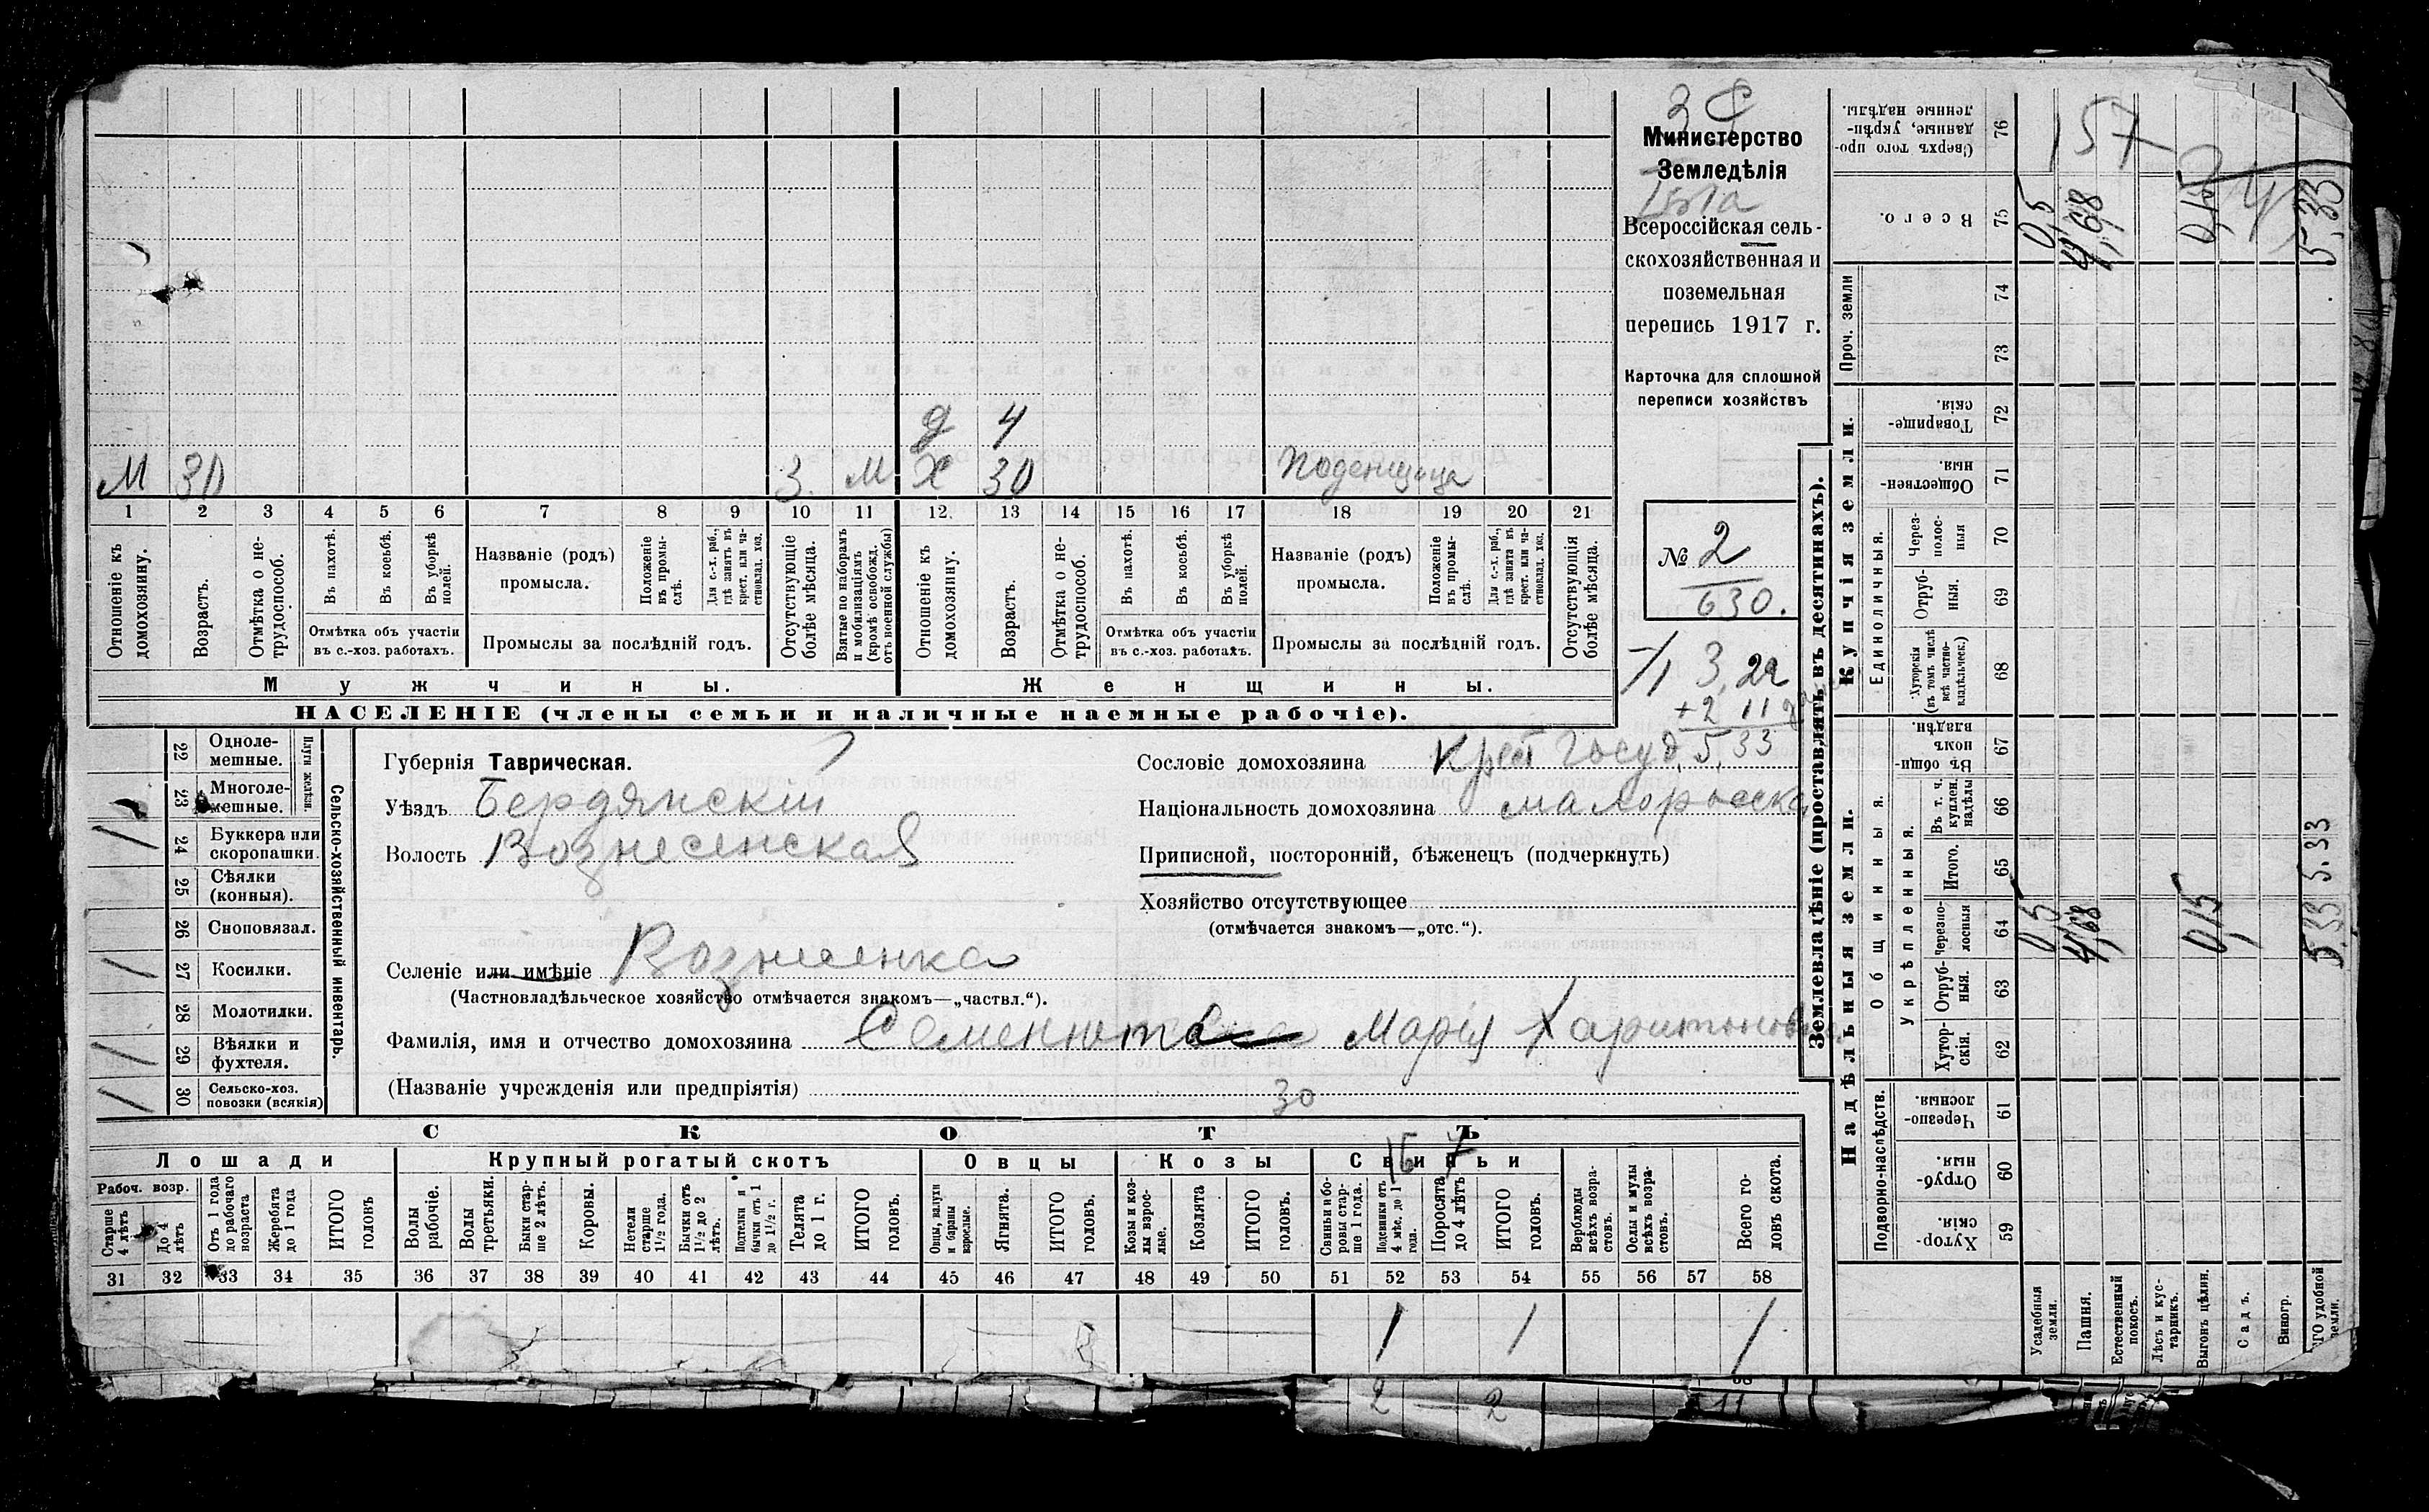 д 4
М 30 3. М Х 30 Поденщица
1 2 3 4 5 6 7 8 9 10 11 12. 13 14 15 16 17 18 19 20 21
Отношеніе къ домохозяину.
Возрастъ.
Отмѣтка о не-трудоспособ.
Въ пахотѣ.
Въ косьбѣ.
Въ уборкѣ полей.
Отмѣтка объ участіи
въ с.-хоз. работахъ.
Названіе (родъ)
промысла.
Положеніе въ промы-слѣ.
Для с.-х. раб., гдѣ занятъ въ крест. или ча-стновлад. хоз.
Промыслы за послѣдній годъ.
Отсутствующіе болѣе мѣсяца.
Взятые по наборамъ и мобилизаціямъ (кромѣ освобожд. отъ военной службы)
Отношеніе къ домохозяину.
Возрастъ.
Отмѣтка о не-трудоспособ.
Въ пахотѣ.
Въ косьбѣ.
Въ уборкѣ полей.
Отмѣтка объ участіи
въ с.-хоз. работахъ.
Названіе (родъ)
промысла.
Положеніе въ промы-слѣ.
Для с.-х. раб., гдѣ занятъ въ крест. или ча-стновлад. хоз.
Промыслы за послѣдній годъ.
Отсутствующія болѣе мѣсяца.
Мужчины. Женщины.
НАСЕЛЕНІЕ (члены семьи и наличные наемные рабочіе).
Министерство
Земледѣлія
Всероссійская сель-
скохозяйственная и
поземельная
перепись 1917 г.
Карточка для сплошной
переписи хозяйствъ
№ 2
630.
3,22
+2 11
5,33
22 Одноле-мешные.
23 Многоле-мешные.
Плуги желѣзн.
24 Буккера или скоропашки. 1
25 Сѣялки (конныя).
26 Сноповязал.
27 Косилки. 1
28 Молотилки.
29 Вѣялки и фухтеля.
30 Сельско-хоз. повозки (всякія)
Сельско-хозяйственный инвентарь.
Губернія Таврическая.
Уѣздъ Бердянскій
Волость Вознесенская
Селеніе или имѣніе Вознесенка
(Частновладѣльческое хозяйство отмѣчается знакомъ—„частвл.“).
Сословіе домохозяина Крест Госуд
Національность домохозяина малоросска
Приписной, посторонній, бѣженецъ (подчеркнуть)
Хозяйство отсутствующее
(отмѣчается знакомъ—„отс.“).
Фамилія, имя и отчество домохозяина Семенюта Марія Харитонов
(Названіе учрежденія или предпріятія)
30
СКОТЪ
Лошади Крупный рогатый скотъ Овцы Козы Свиньи
Рабоч. возр.
Старше 4 лѣтъ
До 4 лѣтъ
Отъ 1 года до рабочаго возраста
Жеребята до 1 года
ИТОГО головъ
Волы рабочіе.
Волы третьяки.
Быки стар-ше 2 лѣтъ.
Коровы.
Нетели старше 1½ года.
Бычки отъ 1½ до 2 лѣтъ.
Подтелки и бычки отъ 1 до 1½ г.
Телята до 1 г.
ИТОГО головъ.
Овцы, валухи и бараны взрослые.
Ягнята.
ИТОГО головъ.
Козы и коз-лы взрос-лые.
Козлята
ИТОГО головъ.
Свиньи и бо-ровы стар-ше 1 года.
Подсвинки отъ 4 мѣс. до 1 года.
Поросята до 4 лѣтъ
ИТОГО головъ.
Верблюды всѣхъ возра-стовъ.
Ослы и мулы всѣхъ возра-стовъ.
Всего го-ловъ скота.
31 32 33 34 35 36 37 38 39 40 41 42 43 44 45 46 47 48 49 50 51 52 53 54 55 56 57 58
1 1 1
2 2 11
Землевладѣніе (проставлять въ десятинахъ).
Надѣльныя земли. Купчія земли.
Подворно-наслѣдств.
Общинныя.
Укрѣпленныя.
Единоличныя.
Проч. земли
59 Хутор-скія.
60 Отруб-ныя.
61 Черезпо-лосныя.
62 Хутор-скія.
63 Отруб-ныя.
64 Черезпо-лосныя
65 Итого.
66 Въ т. ч. куплен. надѣлы
67 Въ общи-номъ владѣн.
68 Хуторскія (въ томъ числѣ всѣ частно-владѣльческ.)
69 Отруб-ныя.
70 Через-полос-ныя
71 Обществен-ныя.
72 Товарище-скія.
73
74
75 Всего.
76 Сверхъ того про-данные, укрѣп-ленные надѣлы.
157
Усадебныя земли. 0,5 0,5
Пашня. 4,68 4,68
Естественный покосъ.
Лѣсъ и кус-тарникъ.
Выгонъ цѣлин. 0,15 0,15
Садъ.
Виногр.
ГО удобной земли. 5.33 5.33 5,33